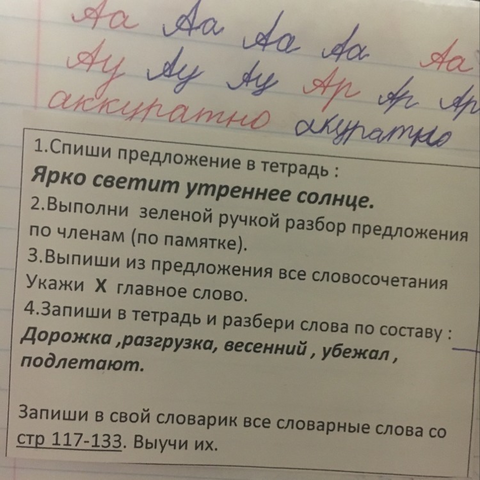 Аа Аа Аа Аа Аа
Ау Ау Ау Ар Ар Ар
аккуратно акуратно
1.Спиши предложение в тетрадь :
Ярко светит утреннее солнце.
2.Выполни зеленой ручкой разбор предложения
по членам (по памятке).
3.Выпиши из предложения все словосочетания
Укажи Х главное слово.
4.Запиши в тетрадь и разбери слова по составу :
Дорожка ,разгрузка, весенний , убежал ,
подлетают.
Запиши в свой словарик все словарные слова со
стр 117-133. Выучи их.